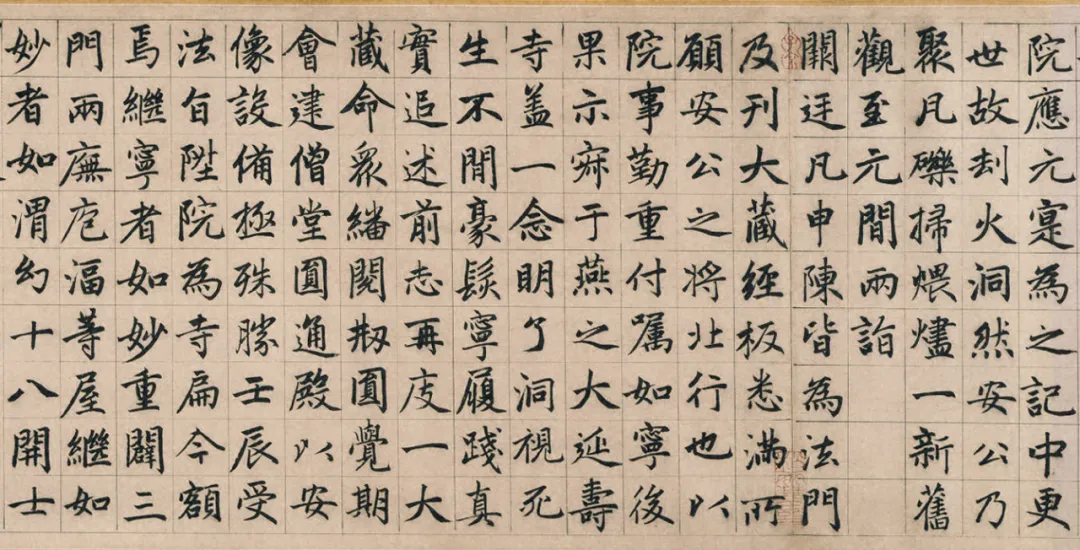 院應元寔為之記中更
世故刧火洞然安公乃
聚瓦礫掃煨燼一新舊
觀至元間兩詣
闕廷凡申陳皆為法門
及刊大藏經板悉滿所
願安公之將北行也以
院事勤重付囑如寧後
果示寂于燕之大延壽
寺盖一念明了洞視死
生不間豪髮寧履踐真
實追述前志再庋一大
藏命衆繙閱刱圓覺期
會建僧堂圓通殿以安
像設備極殊勝壬辰受
法旨陞院為寺扁今額
焉繼寧者如妙重闢三
門兩廡庖湢等屋繼如
妙者如渭幻十八開士